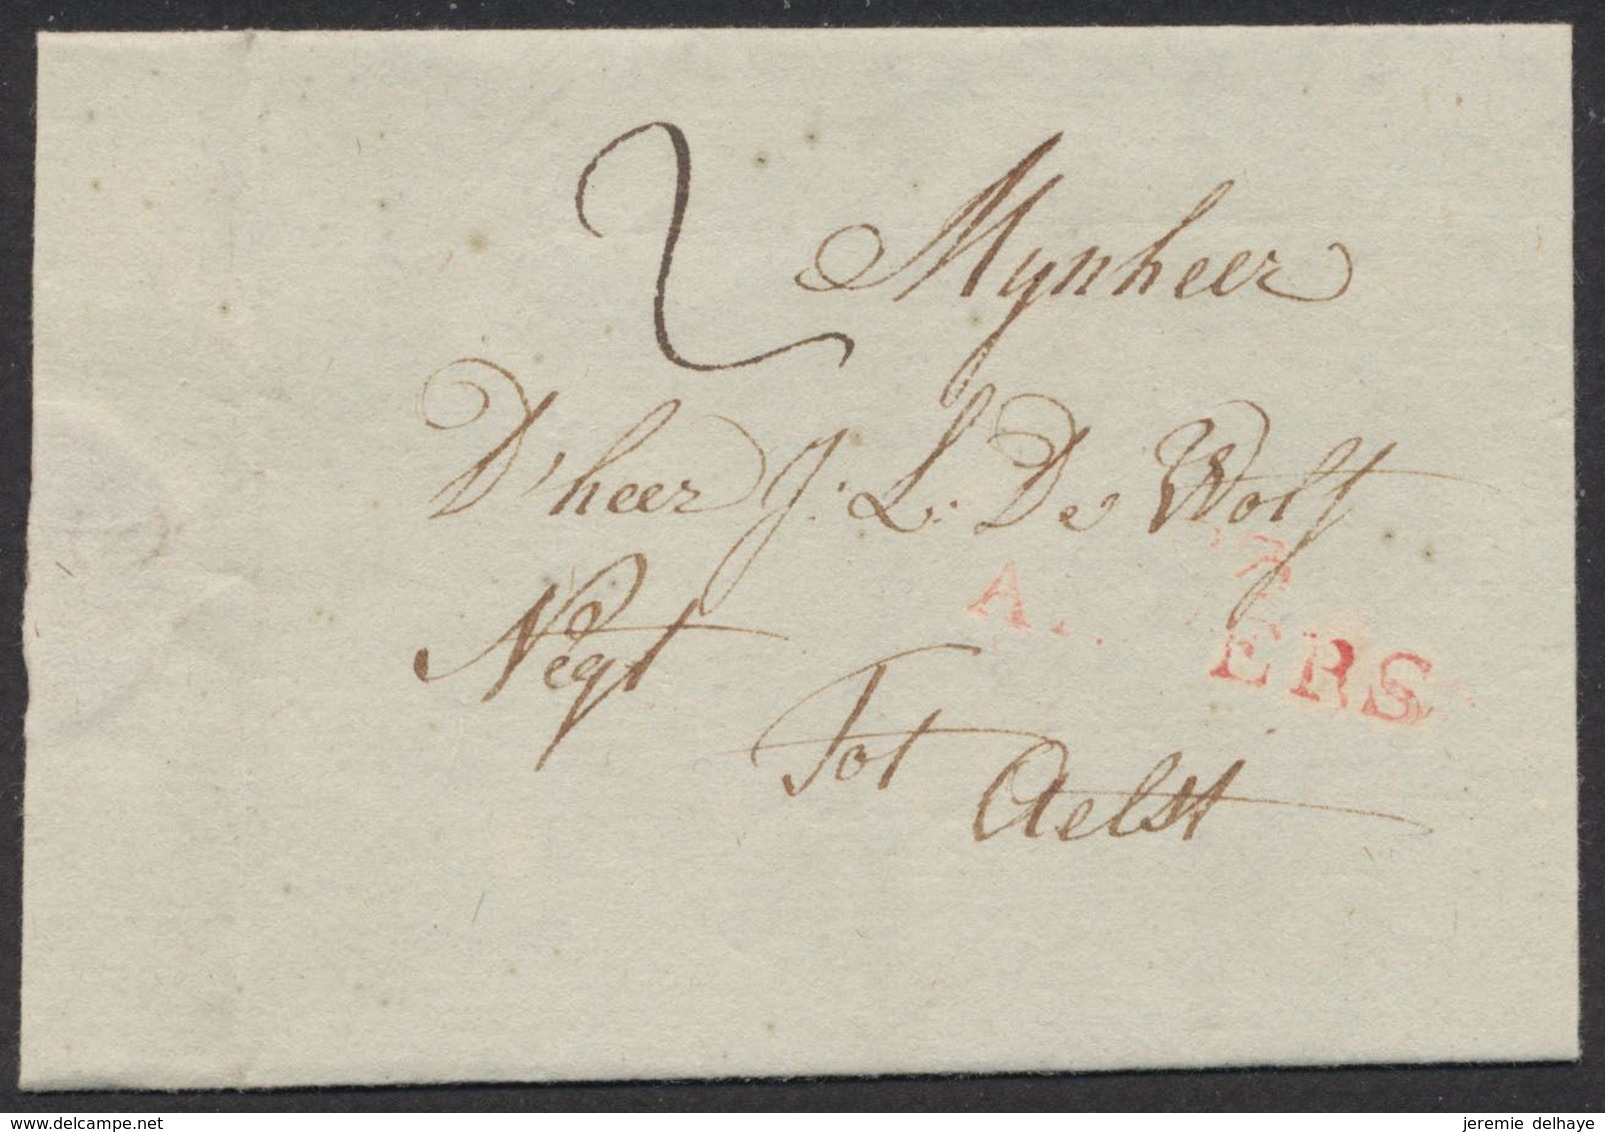 2
Mynheer
D'heer J: L: De Wolf
Negt
Tot
Aelst
ERS
www.delcampe.net
jeremie delhaye